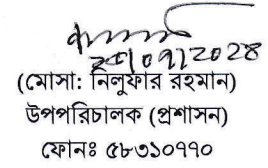 ২৫/০৭/২০২৪
(মোসা: নিলুফার রহমান)
উপপরিচালক (প্রশাসন)
ফোনঃ ৫৮৩১০৭৭০